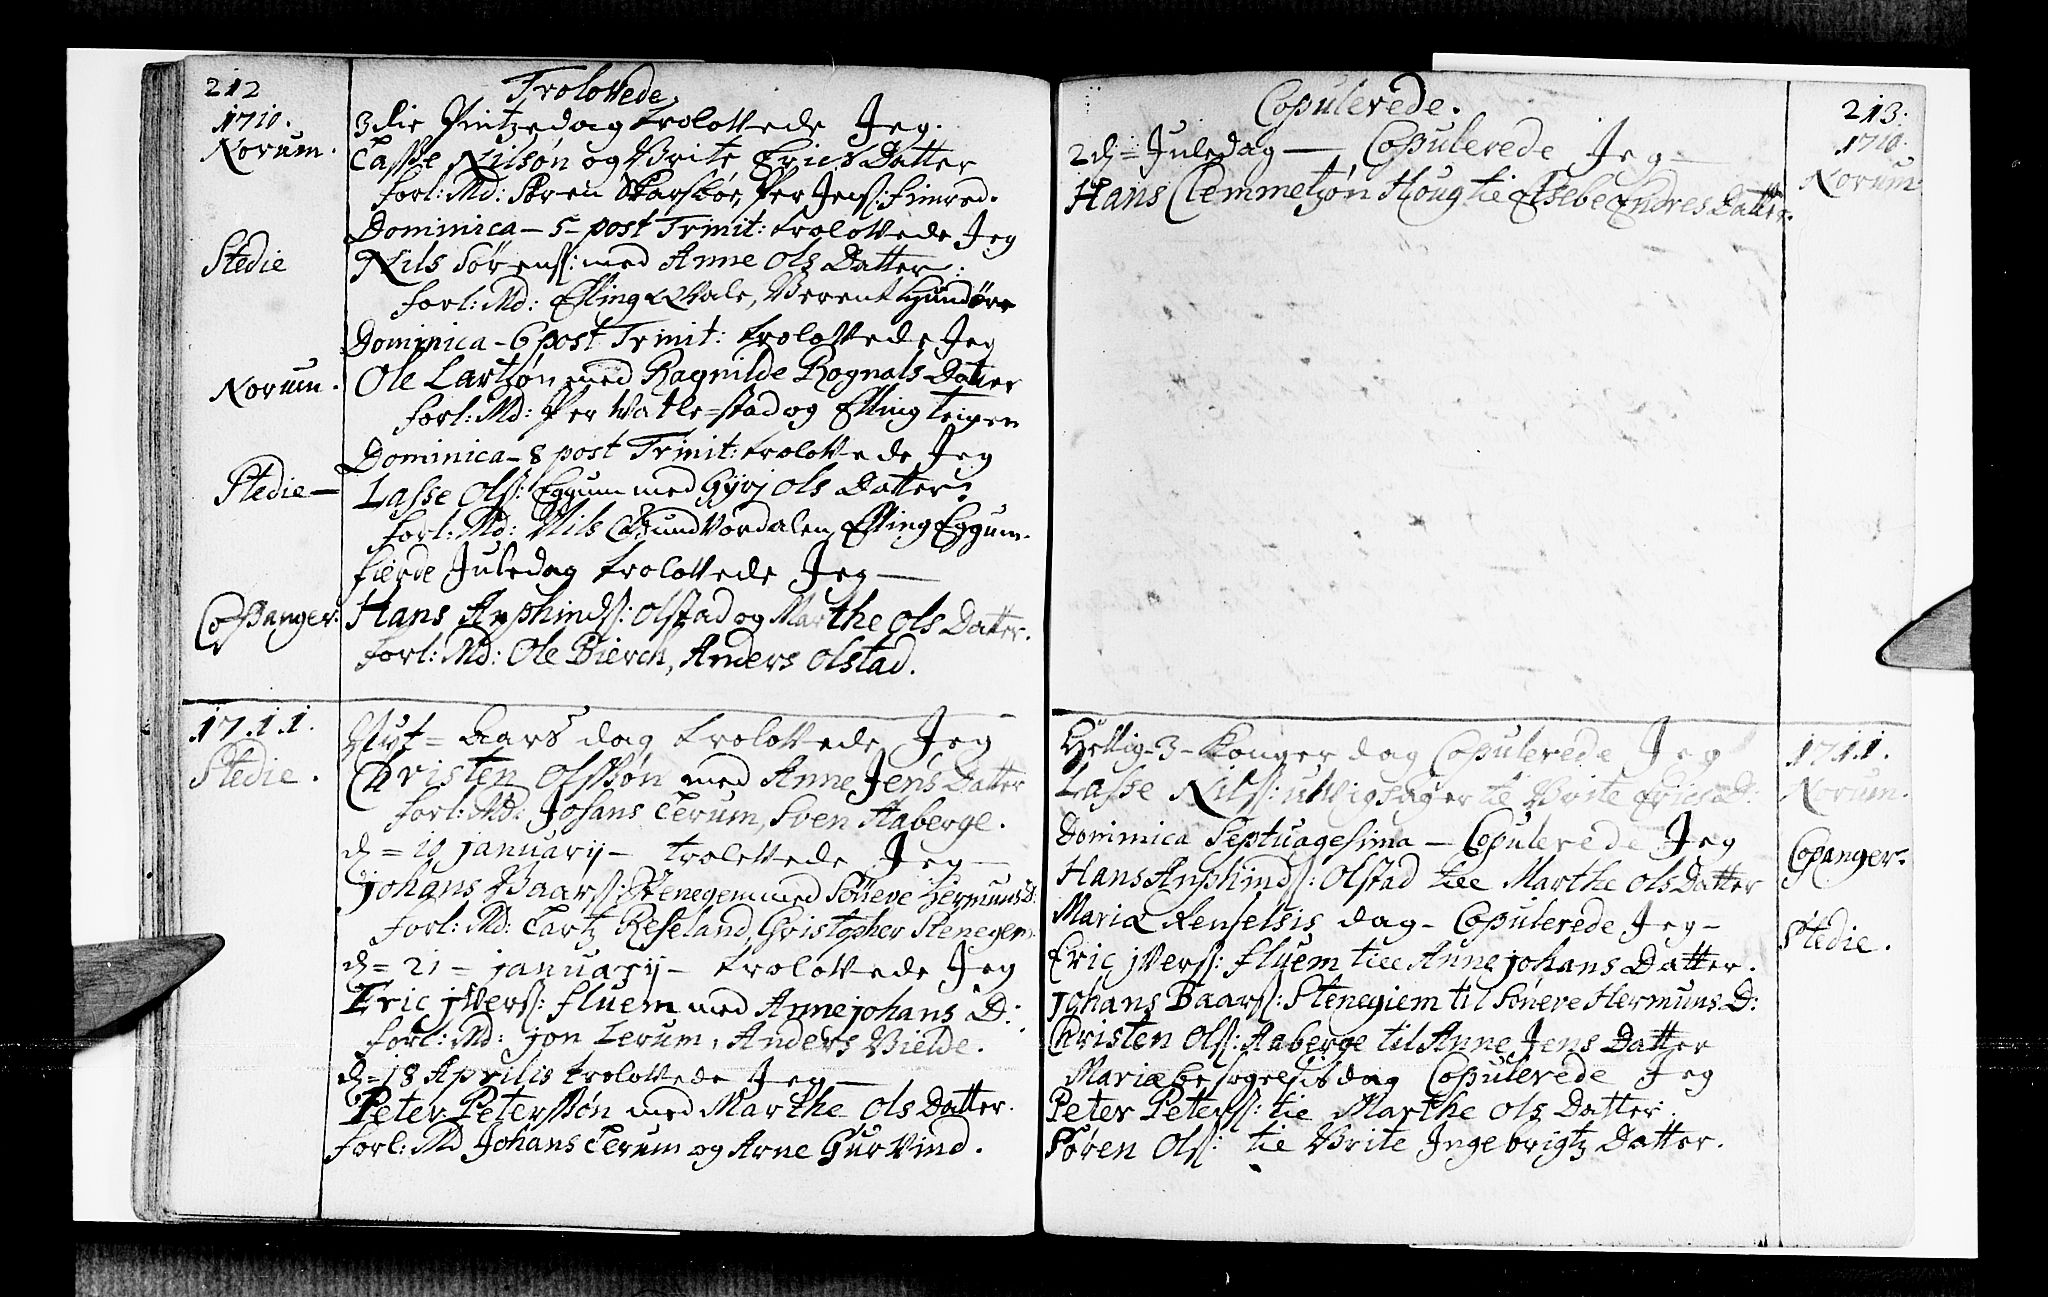 212
Trolovede
1710.
3die Pintzedag trolovede Jeg.
Norum.
Lasse Nilsøn og Brite Erics Datter
forl: Md: Sören Skarsbøe, Per Jens: Fimred.
Dominica - 5 - post Trinit: trolovede Jeg
Stedie
Nils Sörens: med Anne Ols Datter:
forl: Md: Elling Qvale, Berent
Dominica - 6 post Trinit: trolovede Jeg
Norum.
Ole Lartsøn med Ragnilde Rognals Datter
forl: Md: Per Vatle=stad og Elling Teigen
Dominica - 8 post Trinit: trolovede Jeg
Stedie -
Lasse Ols: Eggum med Gyrj Ols Datter:
forl: Md: Nils Elling Eggum.
fierde Juledag trolovede Jeg -
Copanger:
Hans Anphinds: Olstad og Marthe Ols Datter.
forl: Md: Ole Bierch, Anders Olstad.
1711.
Nyt=aars dag trolovede Jeg
Stedie.
Christen Olssøn med Anne Jens Datter
forl: Md: Johans Lerum, Sven Aaberge.
d = 10 januarij - trolovede Jeg -
johans Baars: Stenegem med Sölleve Hermuns D:
forl: Md: Lartz Reseland, Christopher Stenegem
d = 21 = januarij - trolovede Jeg
Eric jvers: fluem med Anne johans D:
forl: Md: jon Lerum, Anders Bielde.
d = 18 Aprilis trolovede Jeg -
Peter Peterssøn med Marthe Ols Datter.
forl: Md Johans Lerum og Arne Gurvind.
Copulerede.
213:
1710.
2d= Juledag - Copulerede Jeg -
Norum
Hans Clemmetzøn Houg til Elsebe Endres Datter.
Hellig-3-Konger dag Copulerede Jeg
1711.
Lasse Nils: til Brite Erics D:
Norum.
Dominica Septuagesima - Copulerede Jeg
Copanger:
Hans Anphinds: Olstad till Marthe Ols Datter
Mariæ Renselsis dag - Copulerede Jeg -
Stedie.
Eric jvers: fluem till Anne johans Datter.
johans Baars: Stenegiem til Söneve Hermuns D:
Christen Ols: Aaberge til Anne Jens Datter
Mariæ besøgelsis dag Copulerede Jeg
Peter Peters: til Marthe Ols Datter.
Sören Ols: til Brite Ingebrigtz Datter.